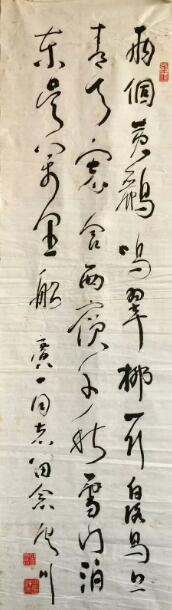 兩個黃鸝鳴翠柳一行白鷺上
青天窗含西嶺千秋雪門泊
東吳萬里船 廣一同志留念